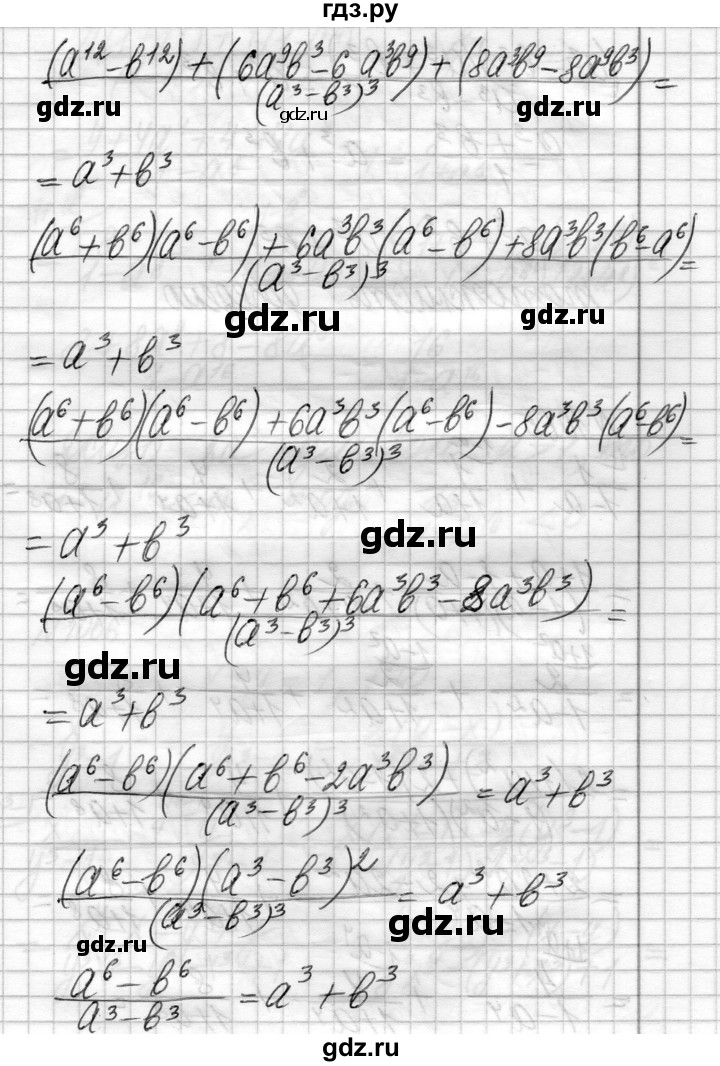 гдз.ру
(a¹² − b¹²) + (6a⁹b³ − 6a³b⁹) + (8a³b⁹ − 8a⁹b³) =
gdz.ru (a³ − b³)³ gdz.ru
gdz.ru
= a³ + b³
(a⁶ + b⁶)(a⁶ − b⁶) + 6a³b³(a⁶ − b⁶) + 8a³b³(b⁶ − a⁶) =
(a³ − b³)³
gdz.ru gdz.ru
= a³ + b³
(a⁶ + b⁶)(a⁶ − b⁶) + 6a³b³(a⁶ − b⁶) − 8a³b³(a⁶ − b⁶) =
(a³ − b³)³
= a³ + b³ gdz.ru
(a⁶ − b⁶)(a⁶ + b⁶ + 6a³b³ − 8a³b³) =
(a³ − b³)³
gdz.ru
= a³ + b³
(a⁶ − b⁶)(a⁶ + b⁶ − 2a³b³) = a³ + b³
(a³ − b³)³
(a⁶ − b⁶)(a³ − b³)² = a³ + b³
(a³ − b³)³ gdz.ru
gdz.ru
a⁶ − b⁶ = a³ + b³
a³ − b³
gdz.ru